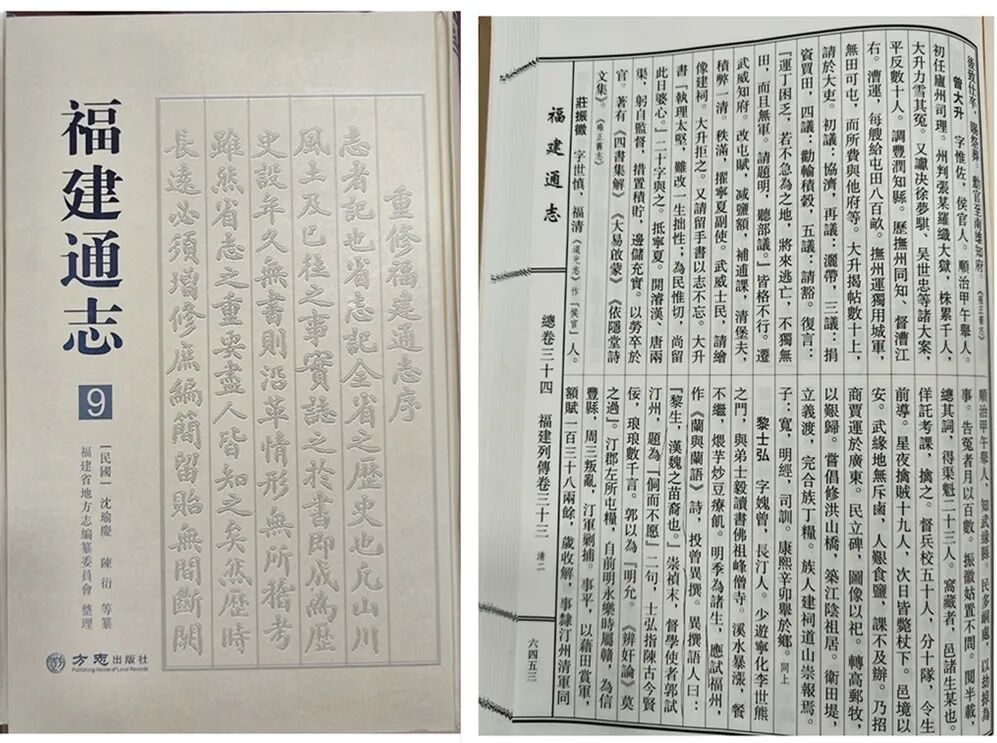 福建通志
9
［民國］沈瑜慶 陳衍 等纂
福建省地方志編纂委員會 整理
方志出版社
Publishing House of Local Records
重修福建通志序
志者記也省志記全省之歷史也凡山川
風土及已往之事實誌之於書即成為歷
史設年久無書則沿革情形無所稽考
雖然省志之重要盡人皆知之矣然歷時
長遠必須增修庶編簡留貽無間斷闕
後致仕卒，賜祭葬 勳官至南雄知府。《雍正舊志》
曾大升 字惟佐，侯官人。順治甲午舉人。
初任廬州司理。州判張某羅織大獄，株累千人，
大升力雪其冤。又讞決徐夢騏、吳世忠等諸大案，
平反數十人。調豐潤知縣。歷撫州同知、督漕江
右。漕運，每艘給屯田八百畝。撫州運獨用城軍，
無田可屯，而所費與他府等。大升揭帖數十上，
請於大吏。初議：協濟，再議：灑帶，三議：捐
資買田，四議：勸輸積穀，五議：請豁。復言：
『運丁困乏，若不急為之地，將來逃亡，不獨無
田，而且無軍。請題明，聽部議。』皆格不行。遷
武威知府。改屯賦，減鹽額，補逋課，清堡夫，
積弊一清。秩滿，擢寧夏副使。武威士民，請繪
像建祠。大升拒之。又請留手書以志不忘。大升
書『執理太堅，難改一生拙性；為民惟切，尚留
此日婆心。』二十字與之。抵寧夏。開濬漢、唐兩
渠，躬自監督，措置積貯，邊儲充實。以勞卒於
官。著有《四書集解》《大易啟蒙》《依隱堂詩
文集》。《雍正舊志》
莊振徽 字世慎，福清《道光志》作『侯官』人。
順治甲午舉人，知武緣縣。民多嗣處，以劫掠為
事。告冤者月以百數。振徽姑置不問。閱半載，
總其詞，得渠魁二十三人。窩藏者，邑諸生某也。
佯託考課，擒之。督兵校五十人，分十隊，令生
前導。星夜擒賊十九人，次日皆斃杖下。邑境以
安。武緣地無斥鹵，人艱食鹽，課不及辦。乃招
商賈運於廣東。民立碑，圖像以祀。轉高郵牧，
以艱歸。嘗倡修洪山橋，築江陰祖居。衛田堤，
立義渡，完合族丁糧。族人建祠道山崇報焉。
子：寬，明經，司訓，康熙辛卯舉於鄉。同上
黎士弘 字媿曾，長汀人。少遊寧化李世熊
之門，與弟士毅讀書佛祖峰僧寺。溪水暴漲，餐
不繼，煨芋炒豆療飢。明季為諸生，應試福州，
作《蘭與蘭語》詩，投曾異撰。異撰語人曰：
『黎生，漢魏之苗裔也。』崇禎末，督學使者郭試
汀州，題為『侗而不愿』二句，士弘指陳古今賢
佞，琅琅數千言。郭以為『明允。《辨奸論》莫
之過』。汀郡左所屯糧。自前明永樂時屬贛，為信
豐縣，周三叛亂，汀軍剿捕。事平，以藉田賞軍，
額賦一百三十八兩餘，歲收解，事隸汀州清軍同
福建通志
總卷三十四 福建列傳卷三十三 清二
六四五三